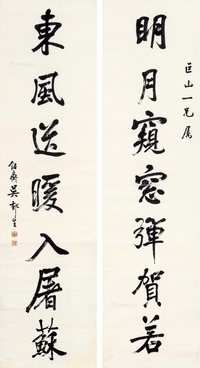 巨山一兄屬
明月窺窓彈賀若
東風送暖入屠蘇
鈍齋吳郁生